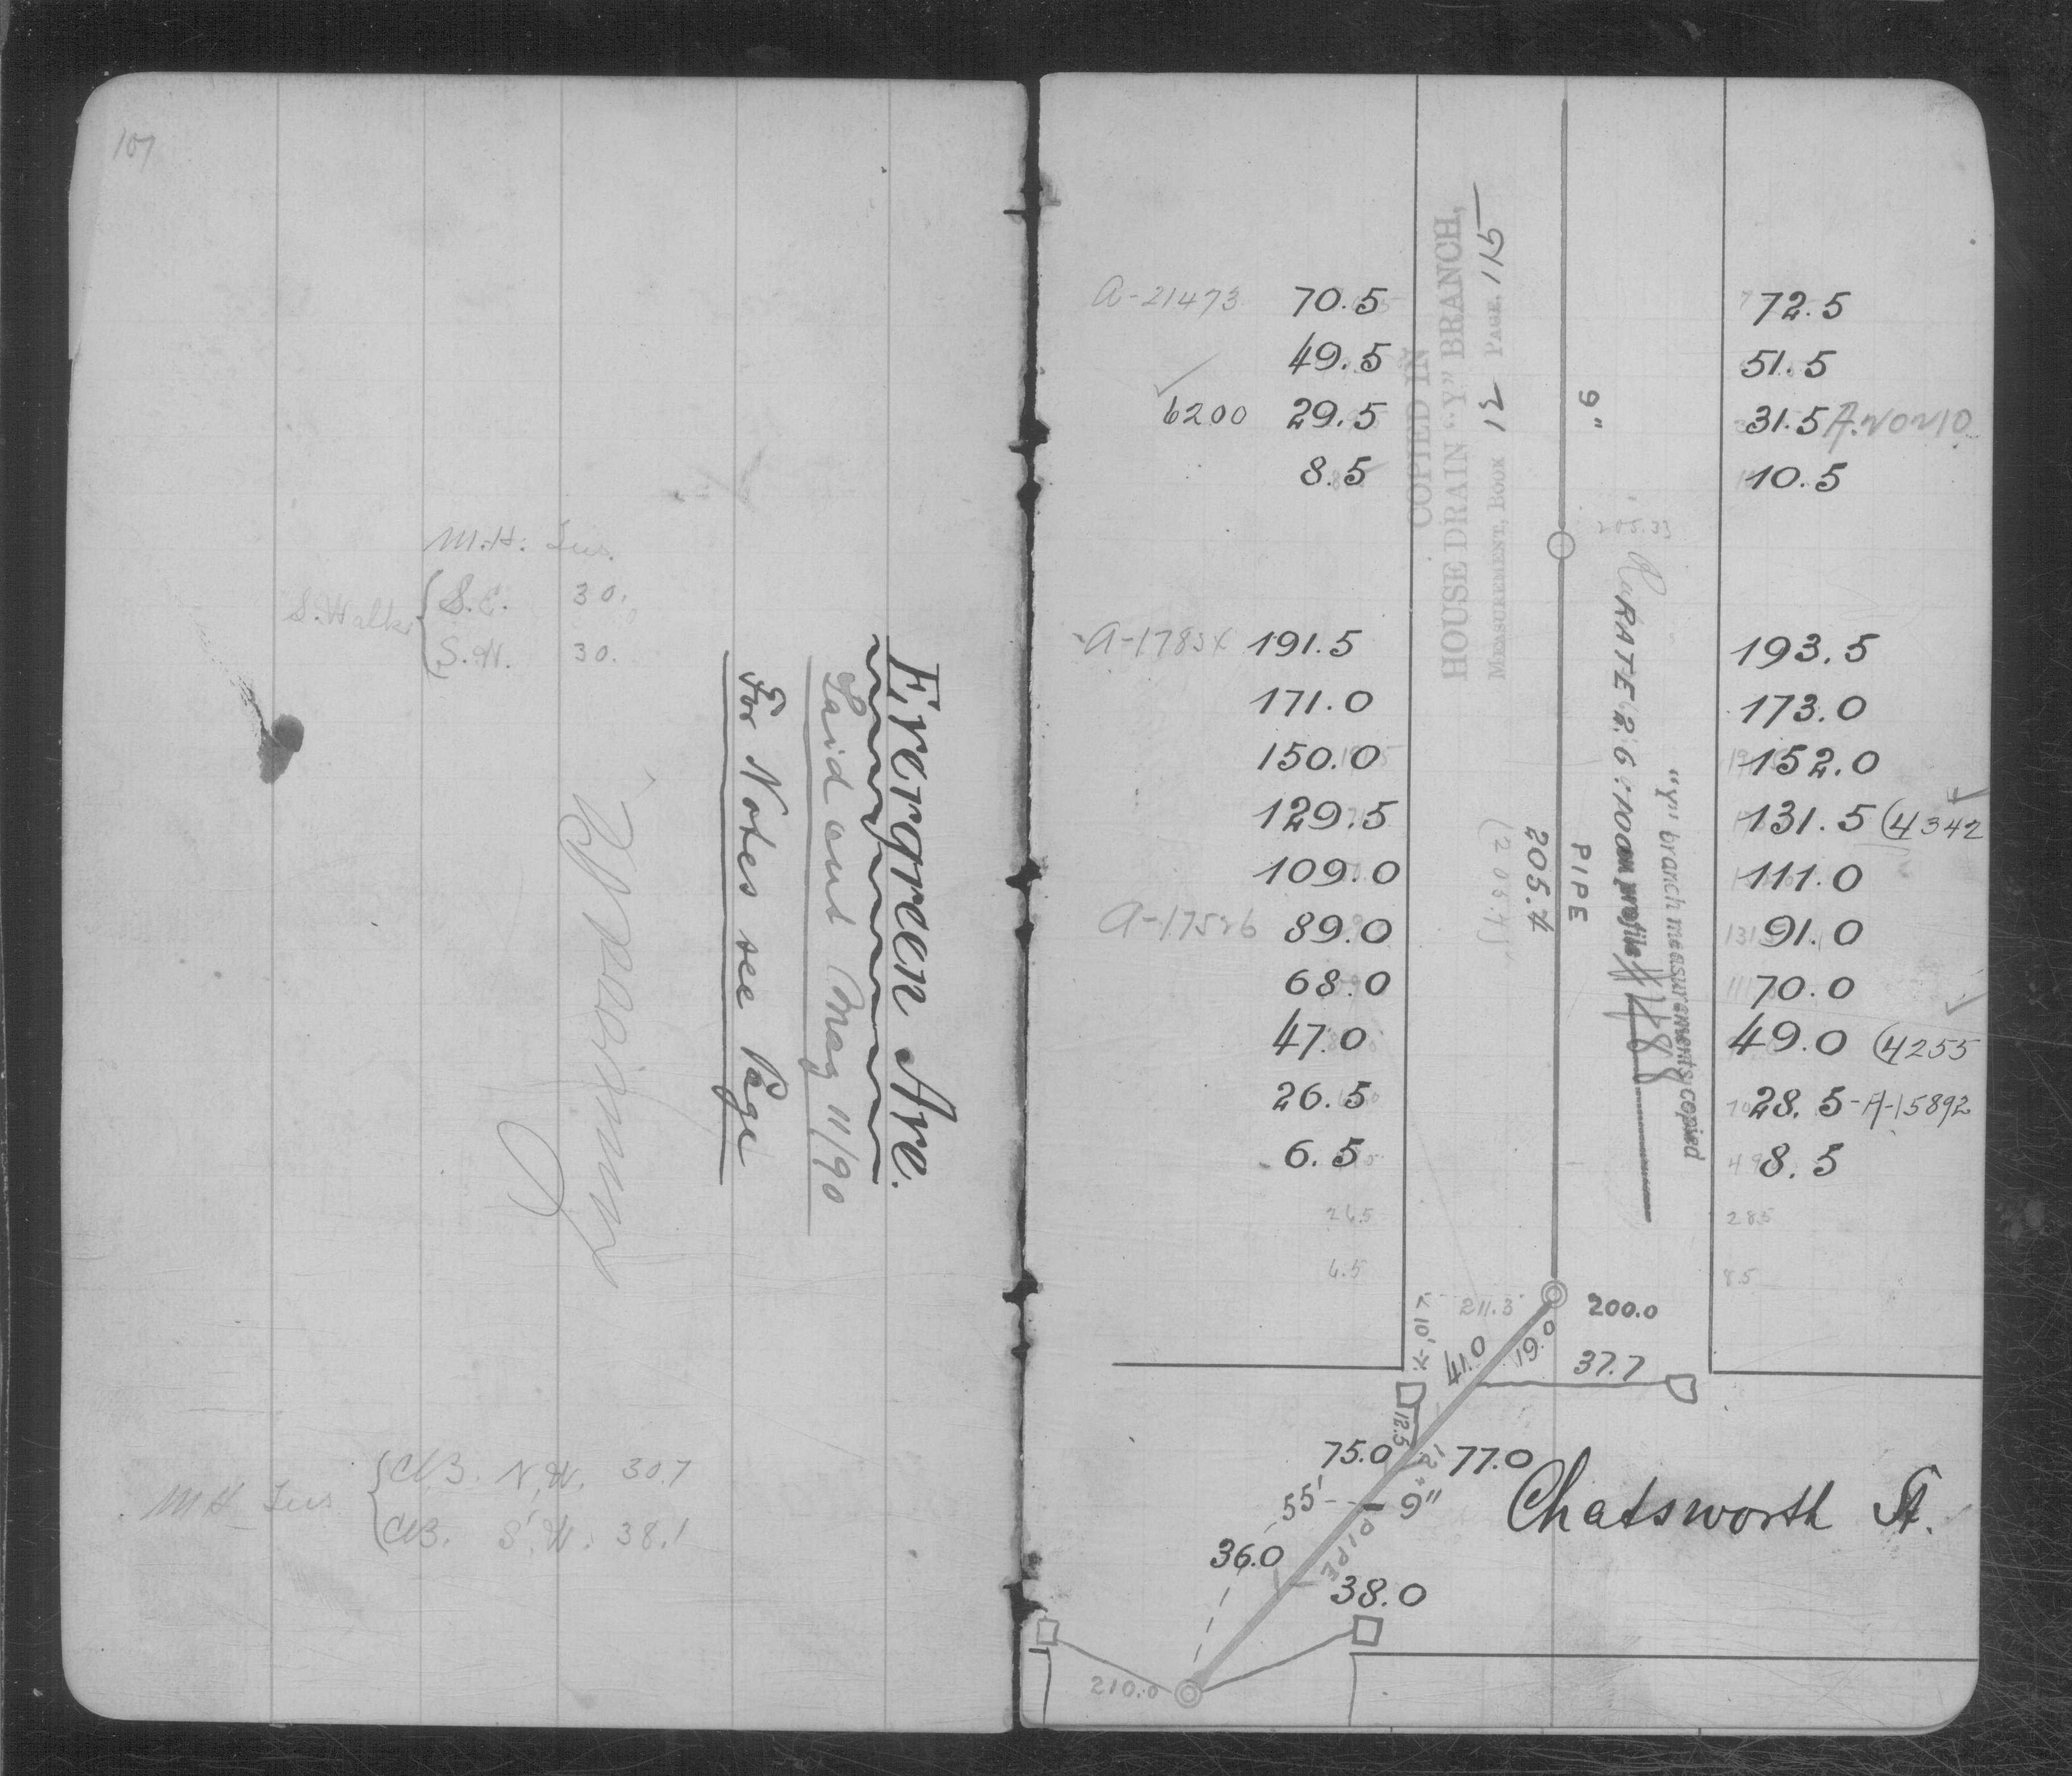 107
M.H.
S.E. 30.
S.W. 30.
Evergreen Ave.
Laid out May 11/90
For Notes see Page
Linnwood Pl
C.B. N.W. 30.7
C.B. S.W. 38.1
A-21473 70.5 72.5
49.5 51.5
6200 29.5 31.5
8.5 10.5
COPIED IN
HOUSE DRAIN "Y" BRANCH,
MEASUREMENT, BOOK 12 PAGE 115
9"
205.33
191.5 193.5
171.0 173.0
150.0 152.0
129.5 131.5 (4342
109.0 111.0
89.0 91.0
68.0 70.0
47.0 49.0 (4255
26.5 28.5-A-15892
6.5 8.5
PIPE
205.4
(205.4)
RATE 2.6:100
"Y" branch measurements copied
26.5 28.5
6.5 8.5
211.3 200.0
<10'>
41.0 19.0 37.7
12.5
75.0 77.0
55' 9"
PIPE
36.0 38.0
Chatsworth St.
210.0